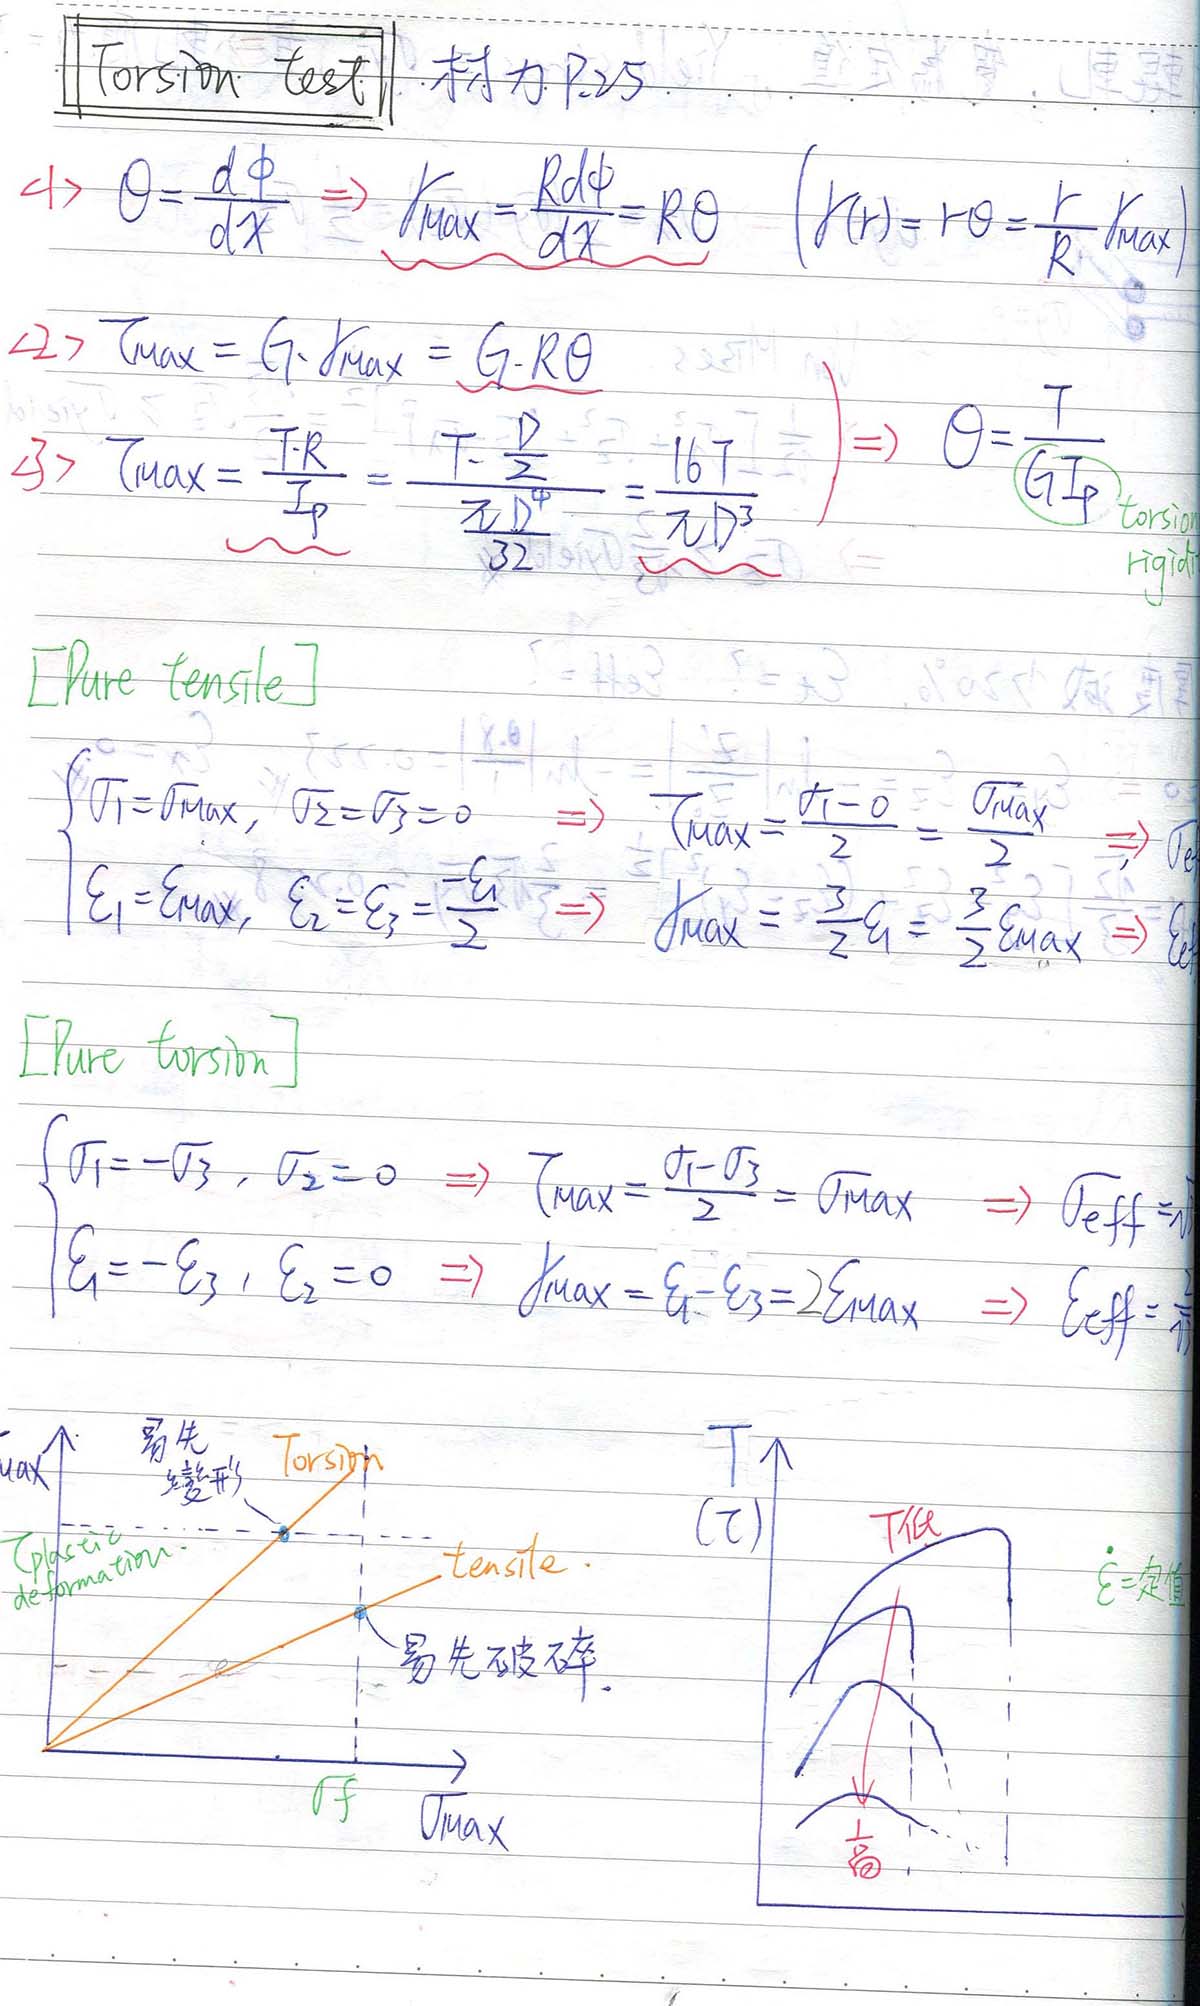 Torsion test 材力 P.25
<1> θ = dφ/dx ⇒ γmax = Rdφ/dx = Rθ (γ(r) = rθ = r/R γmax)
<2> τmax = G·γmax = G·Rθ
<3> τmax = T·R/Ip = (T·D/2)/(πD⁴/32) = 16T/πD³ ⇒ θ = T/GIp
torsion
[Pure tensile]
σ1 = σmax, σ2 = σ3 = 0 ⇒ τmax = (σ1-0)/2 = σmax/2 ⇒
ε1 = εmax, ε2 = ε3 = -ε1/2 ⇒ γmax = 3/2 ε1 = 3/2 εmax ⇒
[Pure torsion]
σ1 = -σ3, σ2 = 0 ⇒ τmax = (σ1-σ3)/2 = σmax ⇒ σeff =
ε1 = -ε3, ε2 = 0 ⇒ γmax = ε1-ε3 = 2εmax ⇒ εeff =
易先
變形
Torsion
τplastic
deformation.
tensile.
易先破碎.
σf
σmax
T
(τ)
T低
ε̇=定值
T高